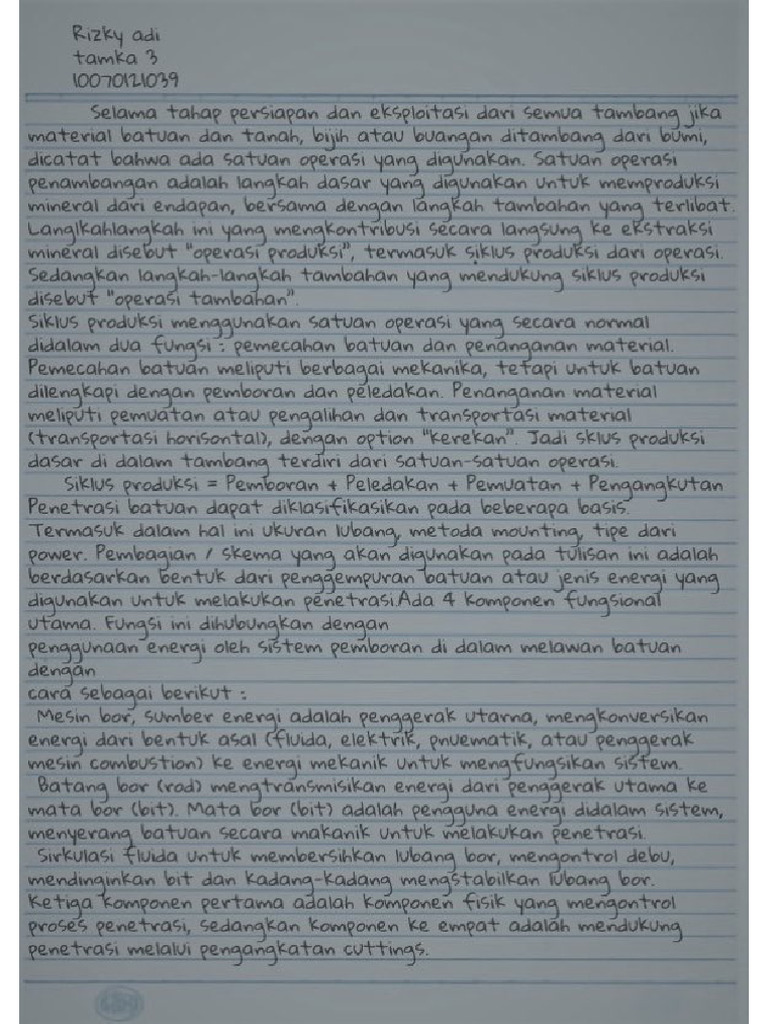 Rizky adi
tamka 3
10070121039
Selama tahap persiapan dan eksploitasi dari semua tambang jika
material batuan dan tanah, bijih atau buangan ditambang dari bumi,
dicatat bahwa ada satuan operasi yang digunakan. Satuan operasi
penambangan adalah langkah dasar yang digunakan untuk memproduksi
mineral dari endapan, bersama dengan langkah tambahan yang terlibat.
Langlkahlangkah ini yang mengkontribusi secara langsung ke ekstraksi
mineral disebut "operasi produksi", termasuk siklus produksi dari operasi.
Sedangkan langkah-langkah tambahan yang mendukung siklus produksi
disebut "operasi tambahan".
Siklus produksi menggunakan satuan operasi yang secara normal
didalam dua fungsi : pemecahan batuan dan penanganan material.
Pemecahan batuan meliputi berbagai mekanika, tetapi untuk batuan
dilengkapi dengan pemboran dan peledakan. Penanganan material
meliputi pemuatan atau pengalihan dan transportasi material
(transportasi horisontal), dengan option "kerekan". Jadi sklus produksi
dasar di dalam tambang terdiri dari satuan-satuan operasi.
Siklus produksi = Pemboran + Peledakan + Pemuatan + Pengangkutan
Penetrasi batuan dapat diklasifikasikan pada beberapa basis.
Termasuk dalam hal ini ukuran lubang, metoda mounting, tipe dari
power. Pembagian / skema yang akan digunakan pada tulisan ini adalah
berdasarkan bentuk dari penggempuran batuan atau jenis energi yang
digunakan untuk melakukan penetrasi.Ada 4 komponen fungsional
utama. Fungsi ini dihubungkan dengan
penggunaan energi oleh sistem pemboran di dalam melawan batuan
dengan
cara sebagai berikut :
Mesin bor, sumber energi adalah penggerak utarna, mengkonversikan
energi dari bentuk asal (fluida, elektrik, pnuematik, atau penggerak
mesin combustion) ke energi mekanik untuk mengfungsikan sistem.
Batang bor (rod) mengtransmisikan energi dari penggerak utama ke
mata bor (bit). Mata bor (bit) adalah pengguna energi didalam sistem,
menyerang batuan secara makanik untuk melakukan penetrasi.
Sirkulasi fluida untuk membersihkan lubang bor, mengontrol debu,
mendinginkan bit dan kadang-kadang mengstabilkan lubang bor.
Ketiga komponen pertama adalah komponen fisik yang mengontrol
proses penetrasi, sedangkan komponen ke empat adalah mendukung
penetrasi melalui pengangkatan cuttings.